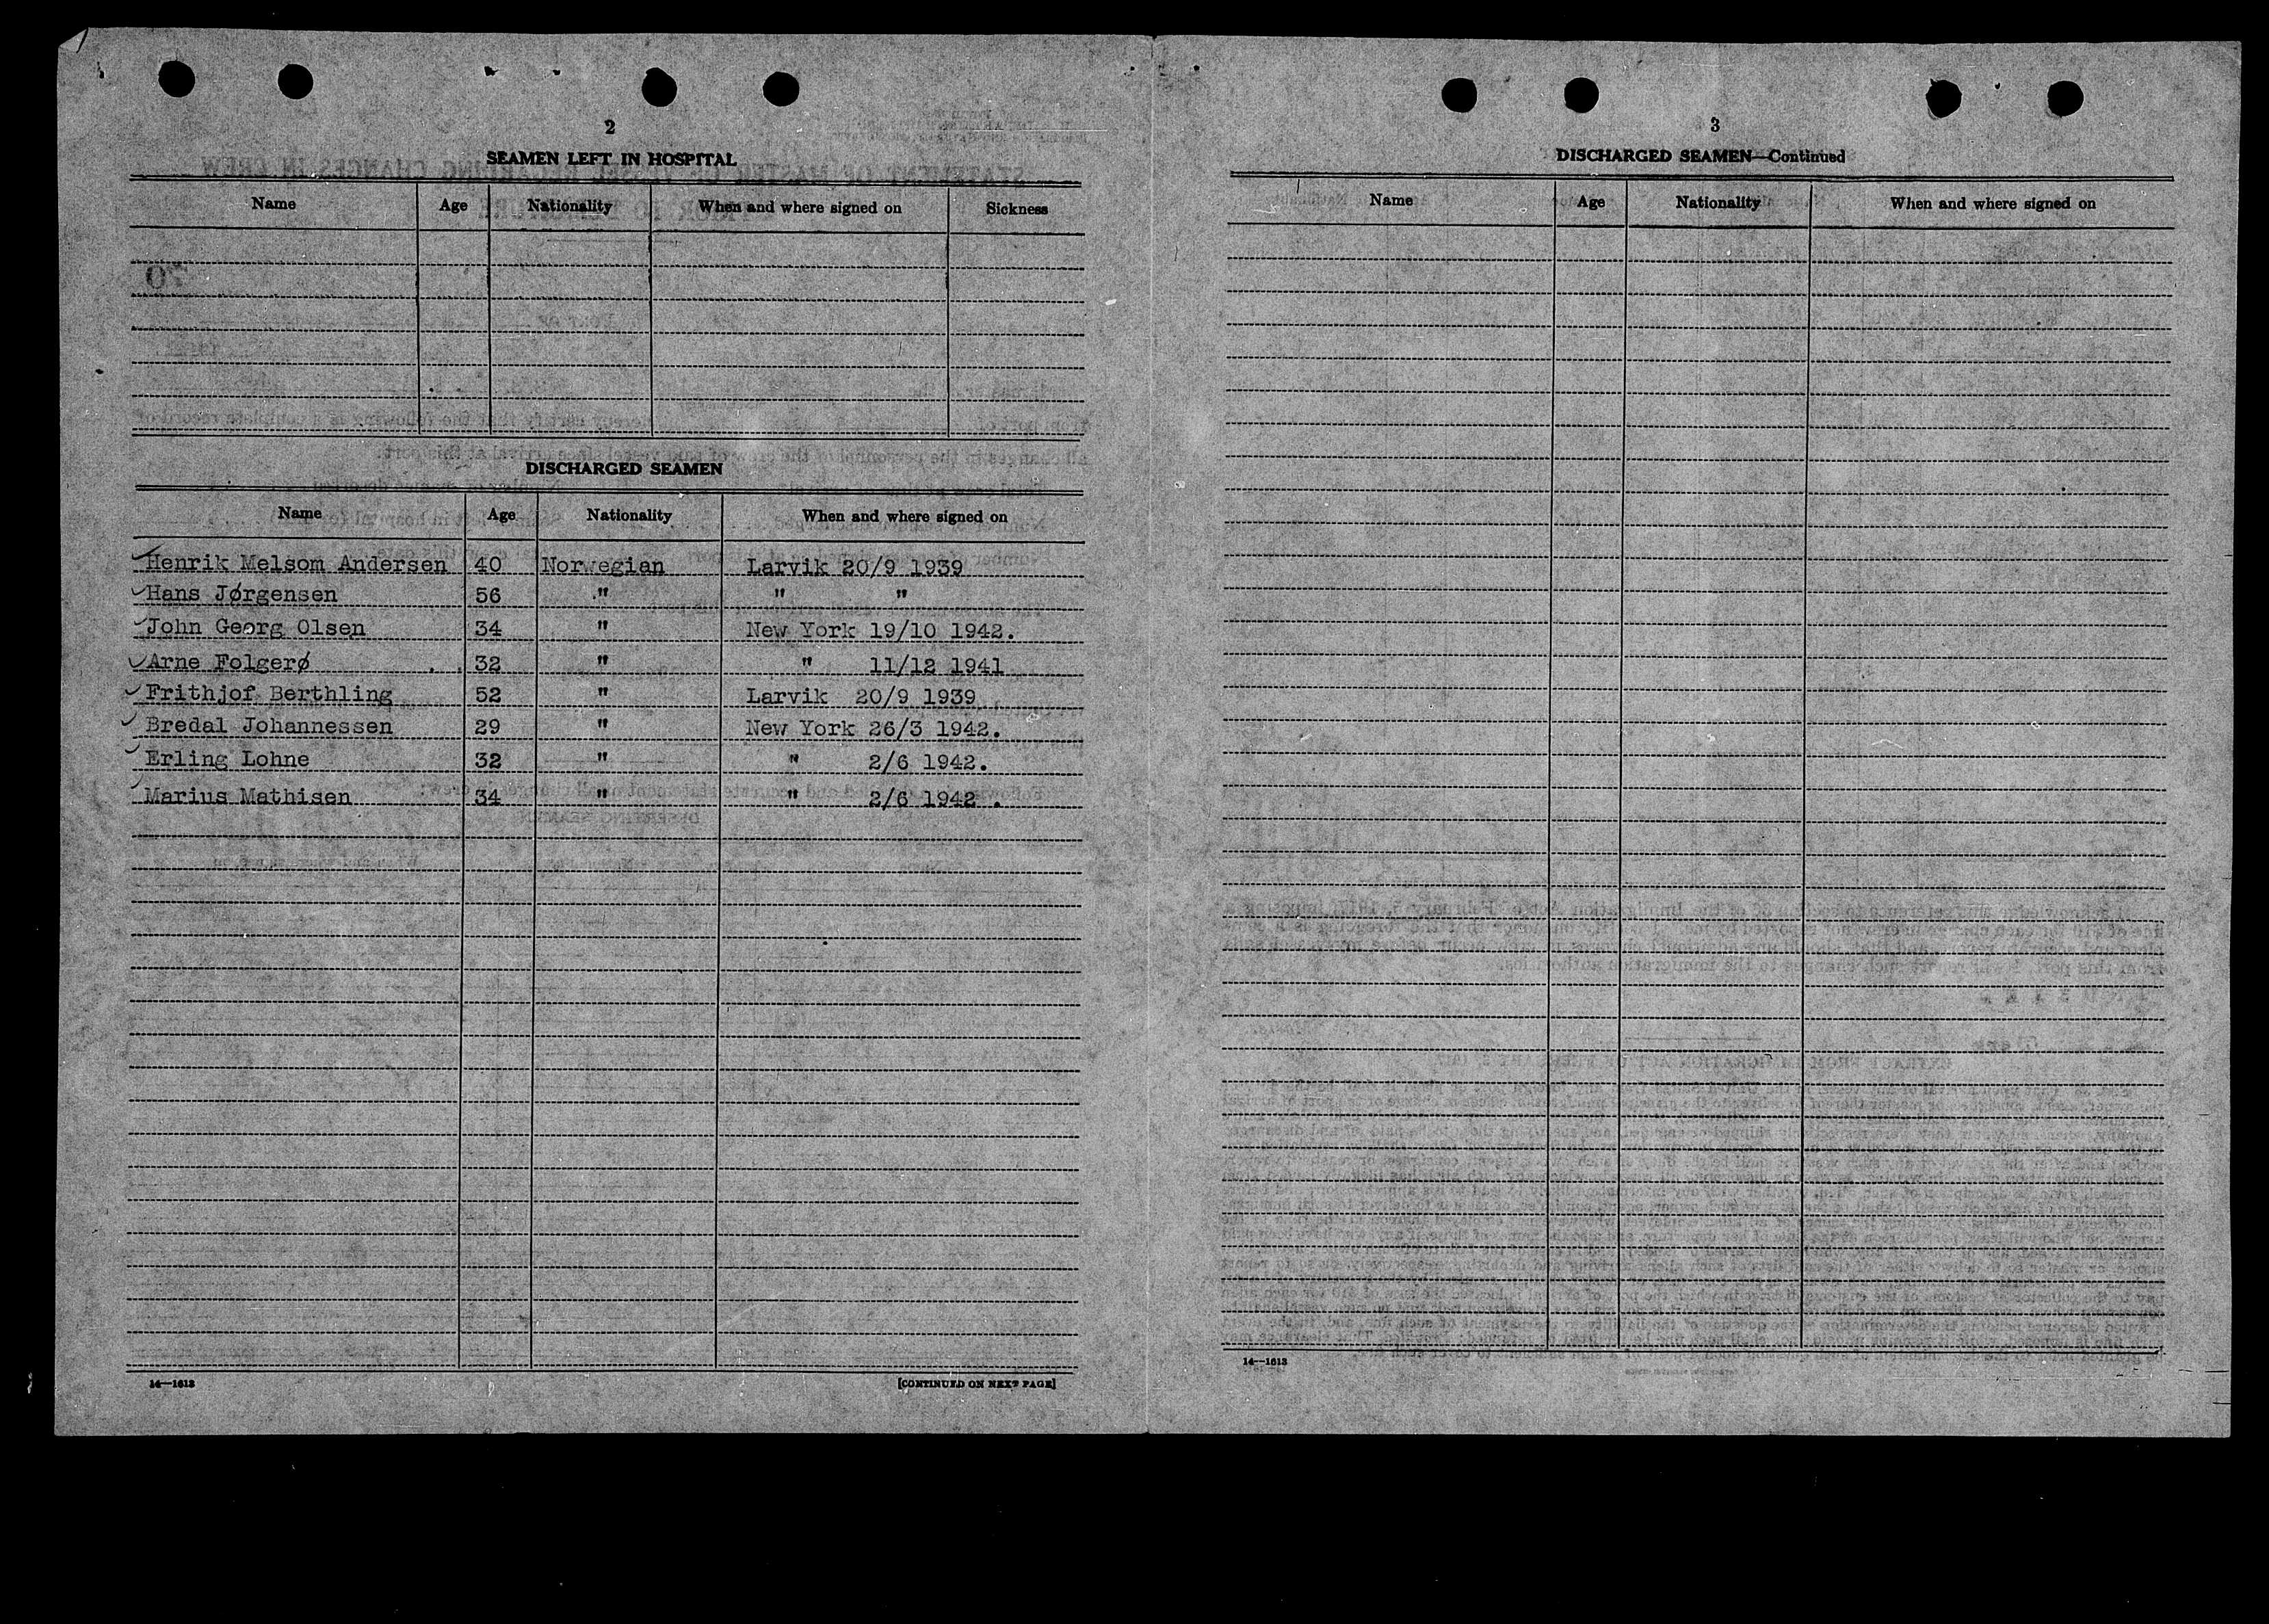 2
SEAMEN LEFT IN HOSPITAL
Name Age Nationality When and where signed on Sickness
DISCHARGED SEAMEN
Name Age Nationality When and where signed on
Henrik Melsom Andersen 40 Norwegian Larvik 20/9 1939
Hans Jørgensen 56 " " "
John Georg Olsen 34 " New York 19/10 1942.
Arne Folgerø 32 " " 11/12 1941
Frithjof Berthling 52 " Larvik 20/9 1939
Bredal Johannessen 29 " New York 26/3 1942.
Erling Lohne 32 " " 2/6 1942.
Marius Mathisen 34 " " 2/6 1942 .
14—1613
[CONTINUED ON NEXT PAGE]
3
DISCHARGED SEAMEN—Continued
Name Age Nationality When and where signed on
14—1613